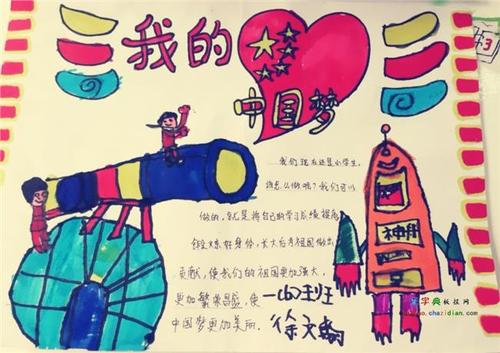 我的
中国梦
我们现在还是小学生，
该怎么做呢？我们可以
做的，就是将自己的学习成绩提高，
锻炼好身体，长大后为祖国做出
贡献，使我们的祖国更加强大，
更加繁荣昌盛，使
中国梦更加美丽。
一(6)班
徐文
神舟
字典教程网
chazidian.com